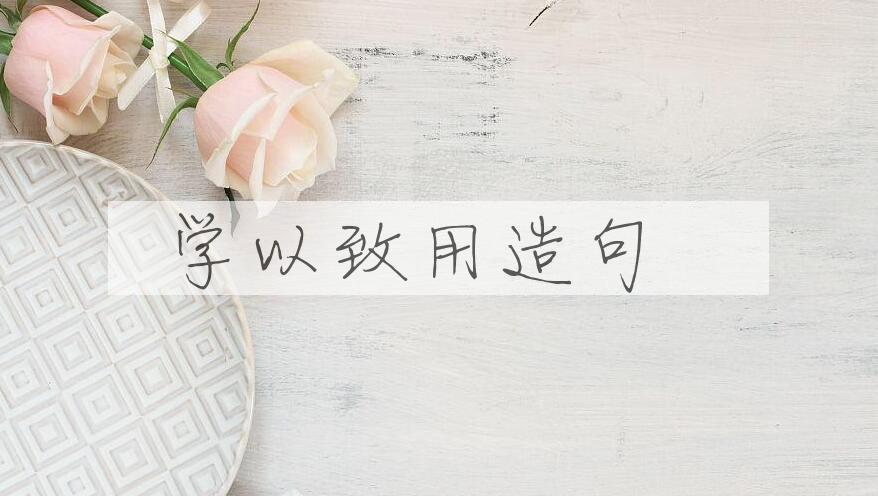 学以致用造句